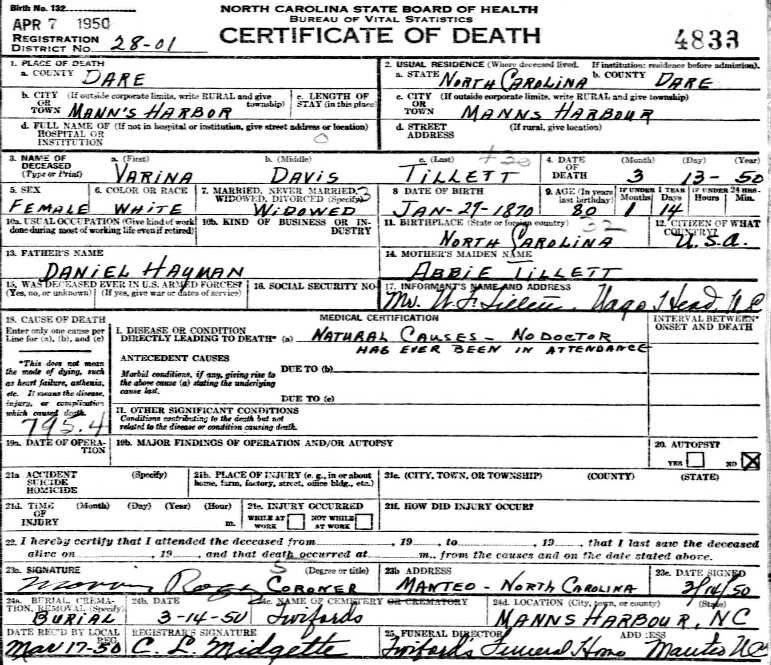 Birth No. 132
NORTH CAROLINA STATE BOARD OF HEALTH
BUREAU OF VITAL STATISTICS
APR 7 1950
REGISTRATION DISTRICT No. 28-01
CERTIFICATE OF DEATH
4833
1. PLACE OF DEATH
a. COUNTY DARE
2. USUAL RESIDENCE (Where deceased lived. If institution: residence before admission).
a. STATE NORTH CAROLINA b. COUNTY DARE
b. CITY (If outside corporate limits, write RURAL and give township)
OR TOWN MANN'S HARBOR
c. LENGTH OF STAY (in this place)
c. CITY (If outside corporate limits, write RURAL and give township)
OR TOWN MANNS HARBOUR
d. FULL NAME OF (If not in hospital or institution, give street address or location)
HOSPITAL OR INSTITUTION
0
d. STREET ADDRESS (If rural, give location)
3. NAME OF DECEASED (Type or Print)
a. (First) VARINA
b. (Middle) DAVIS
c. (Last) TILLETT
4. DATE OF DEATH (Month) (Day) (Year)
3 13-50
5. SEX FEMALE
6. COLOR OR RACE WHITE
7. MARRIED, NEVER MARRIED, WIDOWED, DIVORCED (Specify) 3
WIDOWED
8 DATE OF BIRTH
JAN-29-1870
9. AGE (In years last birthday) 80
IF UNDER 1 YEAR Months 1 Days 14
IF UNDER 24 HRS. Hours Min.
10a. USUAL OCCUPATION (Give kind of work done during most of working life even if retired)
10b. KIND OF BUSINESS OR INDUSTRY
11. BIRTHPLACE (State or foreign country) 32
NORTH CAROLINA
12. CITIZEN OF WHAT COUNTRY?
U.S.A.
13. FATHER'S NAME
DANIEL HAYMAN
14. MOTHER'S MAIDEN NAME
ABBIE TILLETT
15. WAS DECEASED EVER IN U.S. ARMED FORCES?
(Yes, no, or unknown) (If yes, give war or dates of service)
16. SOCIAL SECURITY NO.
17. INFORMANT'S NAME AND ADDRESS
Mr. W. F. Tillett, Nags Head, NC
18. CAUSE OF DEATH
Enter only one cause per Line for (a), (b), and (c)
MEDICAL CERTIFICATION
INTERVAL BETWEEN ONSET AND DEATH
I. DISEASE OR CONDITION
DIRECTLY LEADING TO DEATH* (a) NATURAL CAUSES - NO DOCTOR
HAS EVER BEEN IN ATTENDANCE
*This does not mean the mode of dying, such as heart failure, asthenia, etc. It means the disease, injury, or complication which caused death.
795.4
ANTECEDENT CAUSES
Morbid conditions, if any, giving rise to the above cause (a) stating the underlying cause last.
DUE TO (b)
DUE TO (c)
II. OTHER SIGNIFICANT CONDITIONS
Conditions contributing to the death but not related to the disease or condition causing death.
19a. DATE OF OPERATION
19b. MAJOR FINDINGS OF OPERATION AND/OR AUTOPSY
20. AUTOPSY?
YES NO X
21a ACCIDENT SUICIDE HOMICIDE (Specify)
21b. PLACE OF INJURY (e. g., in or about home, farm, factory, street, office bldg., etc.)
21c. (CITY, TOWN, OR TOWNSHIP) (COUNTY) (STATE)
21d. TIME OF INJURY (Month) (Day) (Year) (Hour) m.
21e. INJURY OCCURRED
WHILE AT WORK NOT WHILE AT WORK
21f. HOW DID INJURY OCCUR?
22. I hereby certify that I attended the deceased from , 19 , to , 19 , that I last saw the deceased
alive on , 19 , and that death occurred at m., from the causes and on the date stated above.
23a. SIGNATURE (Degree or title)
CORONER
23b ADDRESS
MANTEO - NORTH CAROLINA
23c. DATE SIGNED
3/14/50
24a. BURIAL, CREMATION, REMOVAL (Specify)
BURIAL
24b. DATE
3-14-50
24c. NAME OF CEMETERY OR CREMATORY
Twifords
24d. LOCATION (City, town, or county) (State)
MANNS HARBOUR, NC
DATE REC'D BY LOCAL REG.
Mar 17-50
REGISTRAR'S SIGNATURE
C. L. Midgette
25. FUNERAL DIRECTOR ADDRESS
Twiford's Funeral Home Manteo NC